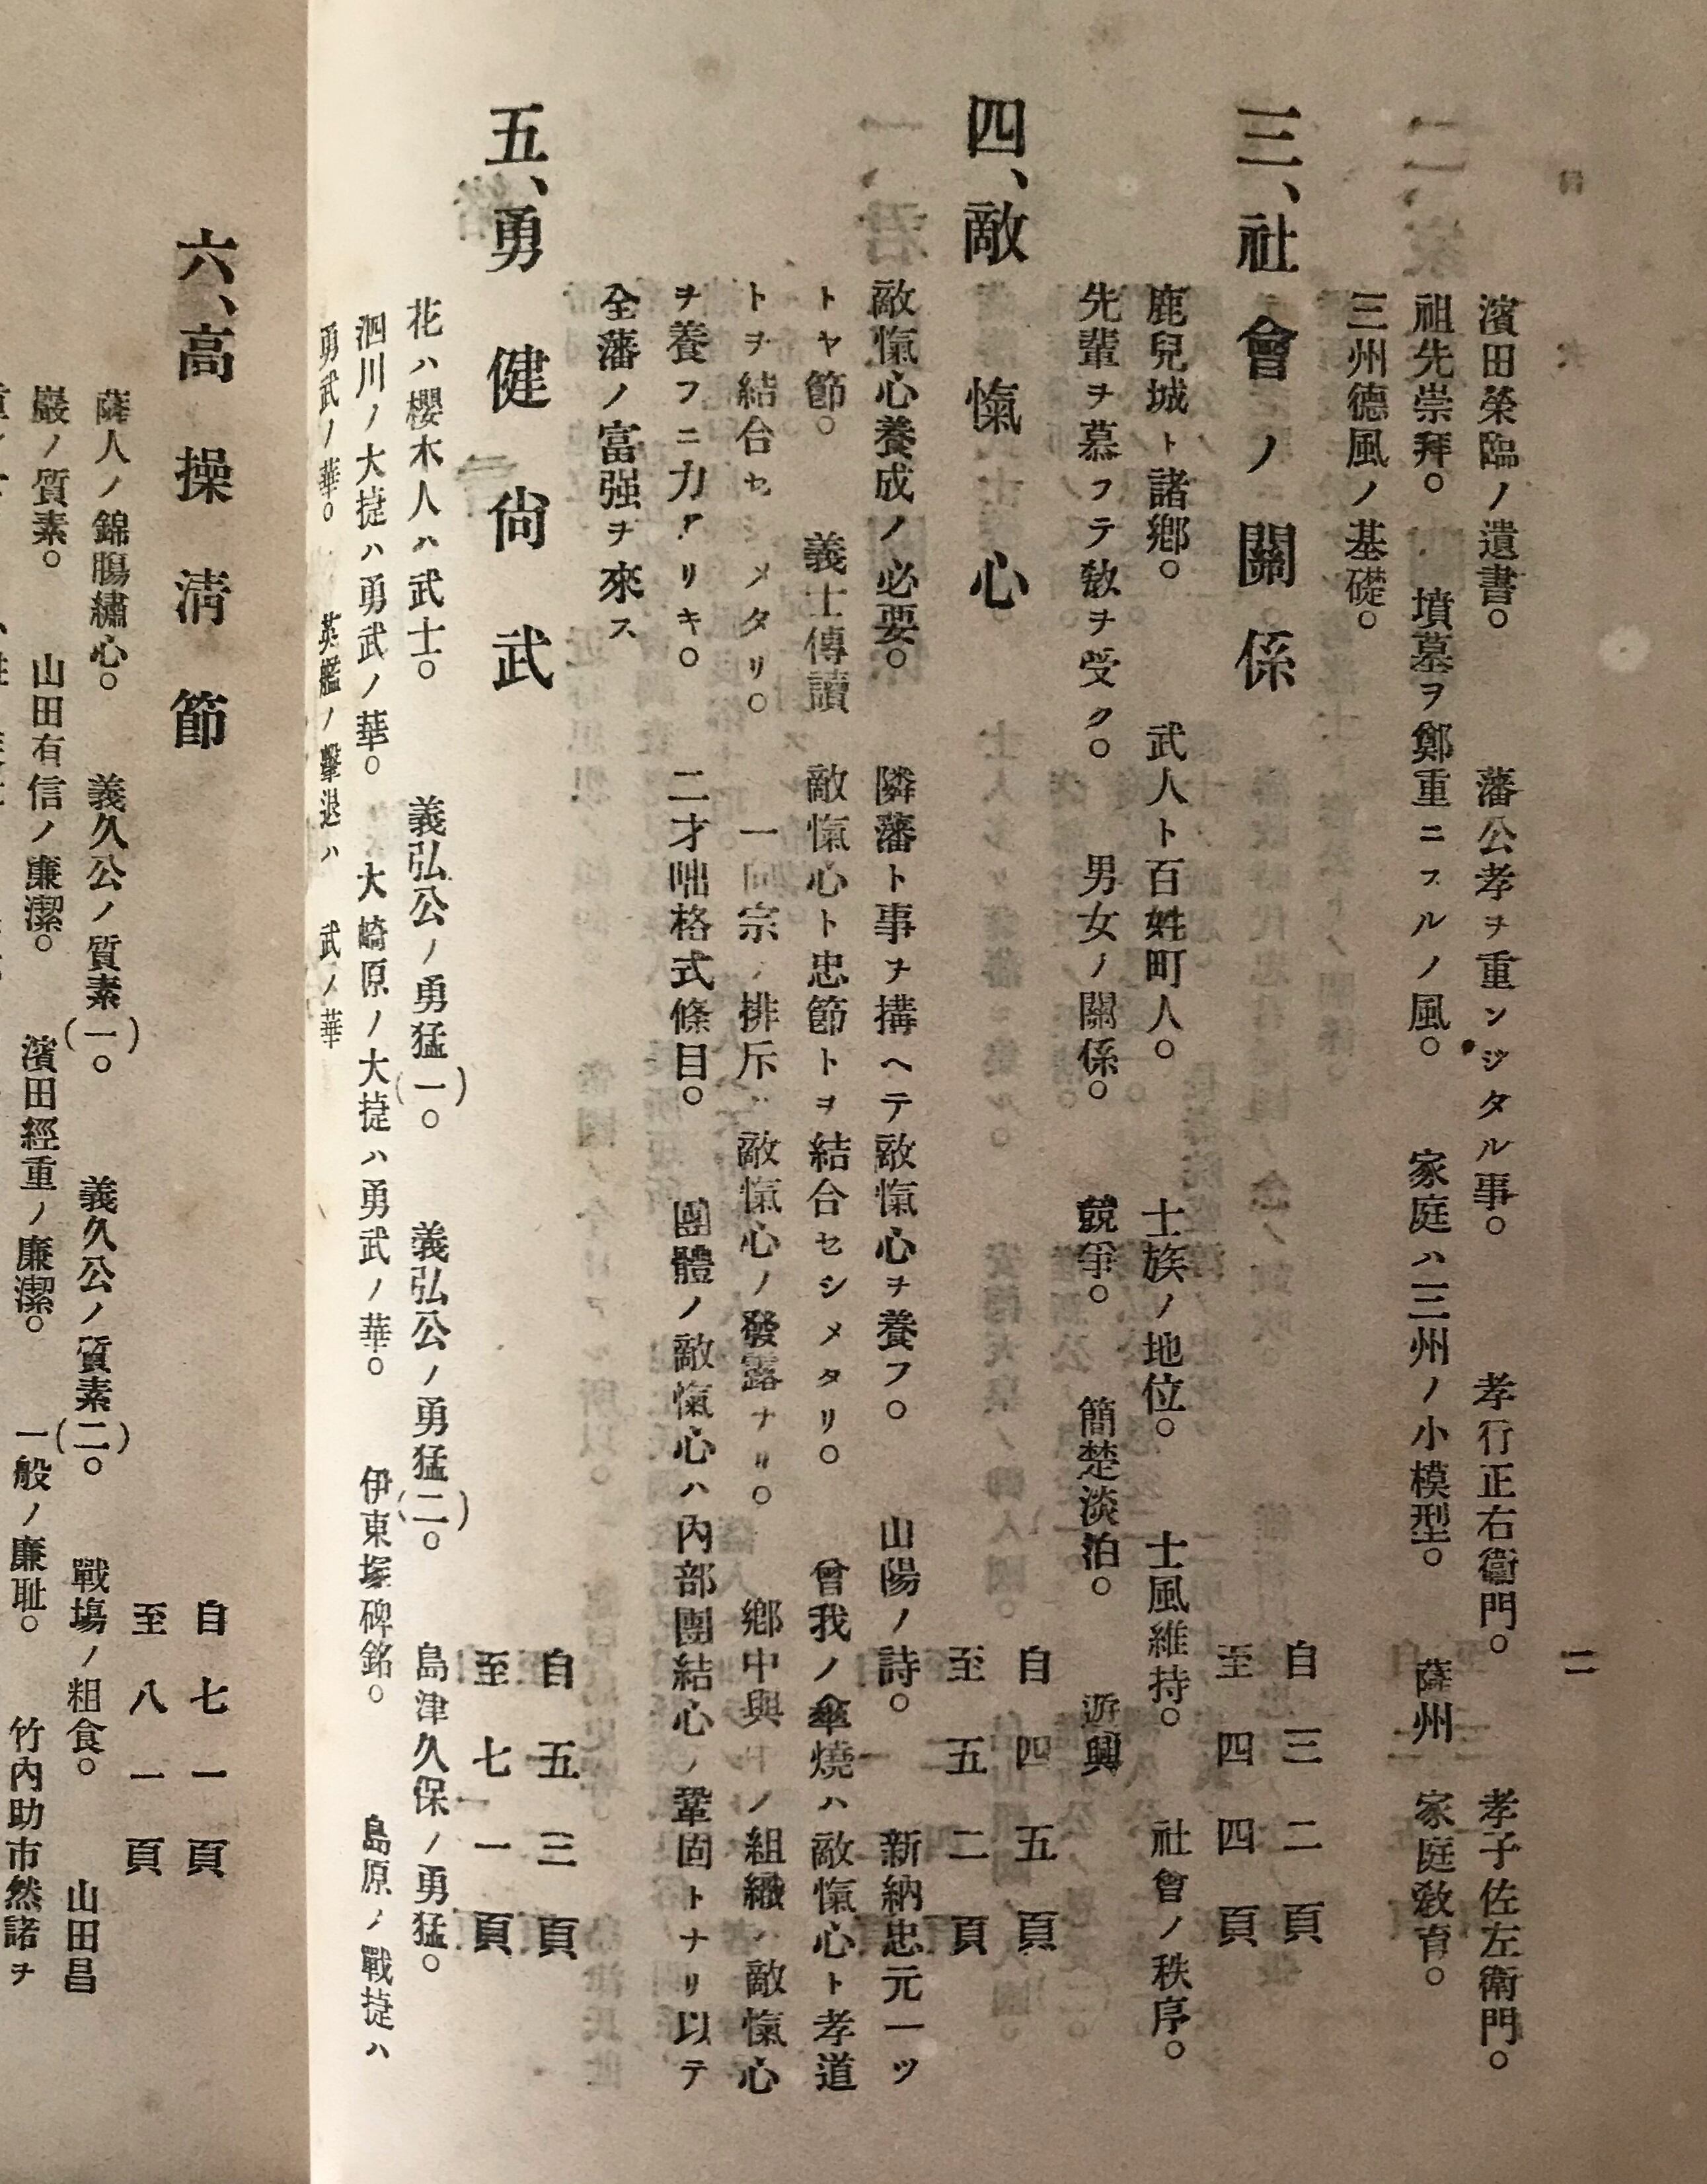 二
濱田榮臨ノ遺書。 藩公孝ヲ重ンジタル事。 孝行正右衞門。 孝子佐左衛門。
祖先崇拜。 墳墓ヲ鄭重ニスルノ風。 家庭ハ三州ノ小模型。 薩州 家庭敎育。
三州德風ノ基礎。
三、社會ノ關係
自三二頁
至四四頁
鹿兒城ト諸鄕。 武人ト百姓町人。 士族ノ地位。 士風維持。 社會ノ秩序。
先輩ヲ慕フテ敎ヲ受ク。 男女ノ關係。 競爭。 簡楚淡泊。 遊興
四、敵愾心
自四五頁
至五二頁
敵愾心養成ノ必要。 隣藩ト事ヲ搆ヘテ敵愾心ヲ養フ。 山陽ノ詩。 新納忠元一ツ
トヤ節。 義士傳讀 敵愾心ト忠節トヲ結合セシメタリ。 曾我ノ傘燒ハ敵愾心ト孝道
トヲ結合セシメタリ。 一向宗ノ排斥ハ敵愾心ノ發露ナリ。 鄕中與中ノ組織ハ敵愾心
ヲ養フニ力アリキ。 二才咄格式條目。 團體ノ敵愾心ハ內部團結心ノ鞏固トナリ以テ
全藩ノ富强ヲ來ス
五、勇健尙武
自五三頁
至七一頁
花ハ櫻木人ハ武士。 義弘公ノ勇猛(一)。 義弘公ノ勇猛(二)。 島津久保ノ勇猛。
泗川ノ大捷ハ勇武ノ華。 大崎原ノ大捷ハ勇武ノ華。 伊東塚碑銘。 島原ノ戰捷ハ
勇武ノ華。 英艦ノ擊退ハ 武ノ華
六、高操淸節
自七一頁
至八一頁
薩人ノ錦膓繡心。 義久公ノ質素(一)。 義久公ノ質素(二)。 戰塲ノ粗食。 山田昌
巖ノ質素。 山田有信ノ廉潔。 濱田經重ノ廉潔。 一般ノ廉耻。 竹內助市然諾ヲ